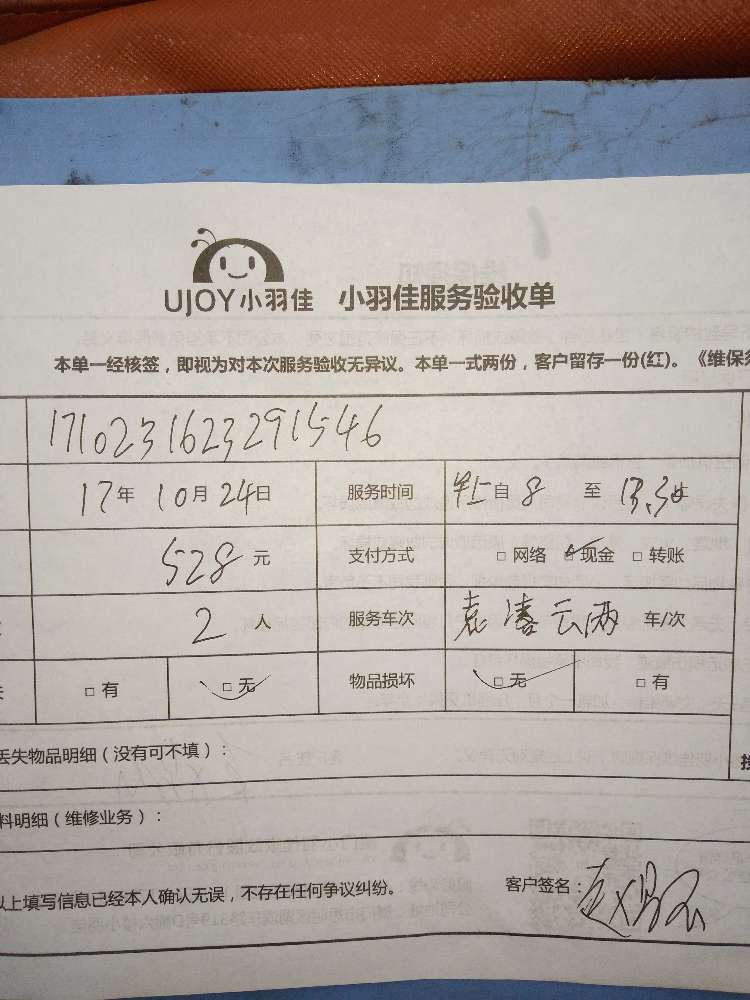 UJOY小羽佳 小羽佳服务验收单
本单一经核签，即视为对本次服务验收无异议。本单一式两份，客户留存一份(红)。《维保
1710231623291546
17年 10月 24日 服务时间 自 8 至 13.30
528 元 支付方式 □ 网络 □ 现金 □ 转账
2 人 服务车次 车/次
□ 有 □ 无 物品损坏 □ 无 □ 有
丢失物品明细（没有可不填）：
料明细（维修业务）：
以上填写信息已经本人确认无误，不存在任何争议纠纷。 客户签名：